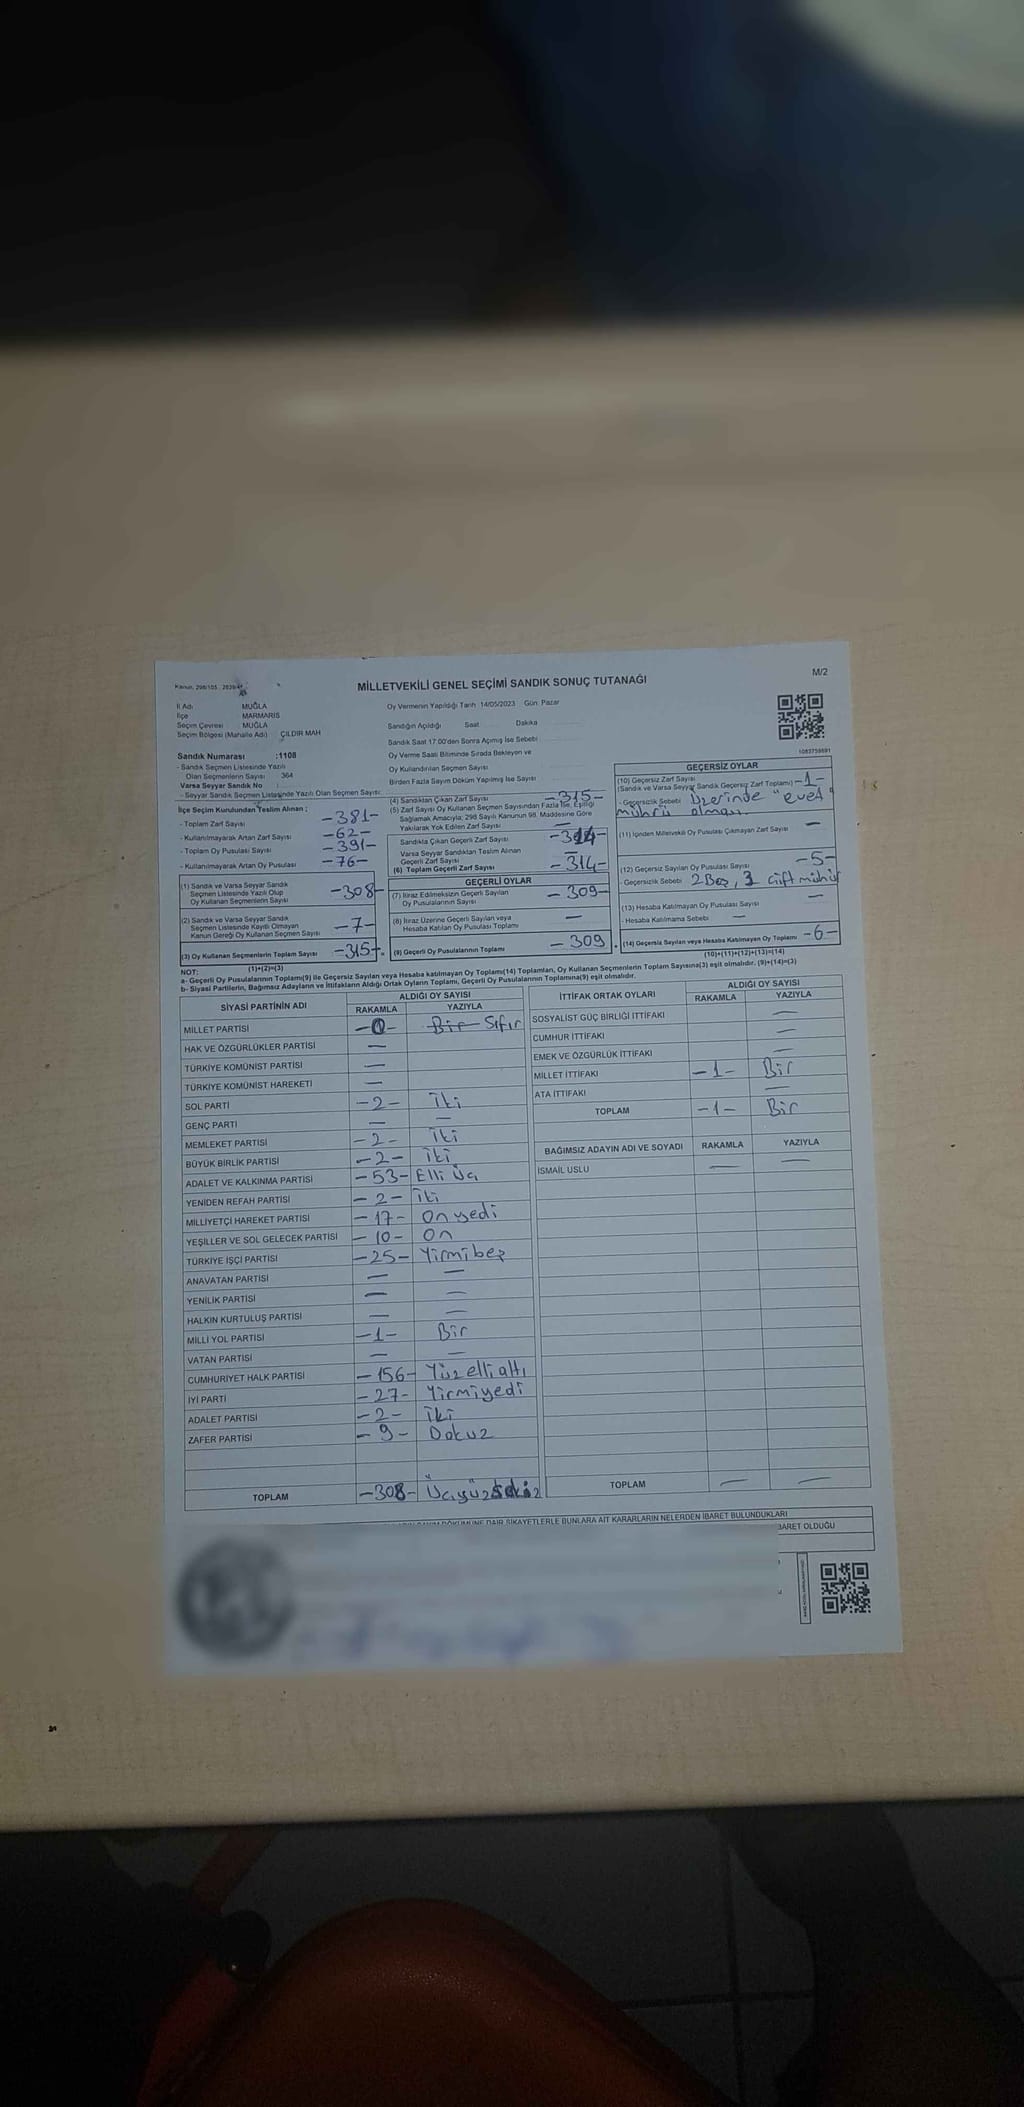 Kanun, 298/105
MİLLETVEKİLİ GENEL SEÇİMİ SANDIK SONUÇ TUTANAĞI
M/2
İl Adı MUĞLA
İlçe MARMARİS
Seçim Çevresi MUĞLA
Seçim Bölgesi (Mahalle Adı) ÇILDIR MAH
Oy Vermenin Yapıldığı Tarih 14/05/2023 Gün: Pazar
Sandığın Açıldığı Saat Dakika
Sandık Saat 17:00'den Sonra Açılmış İse Sebebi
Oy Verme Saati Bitiminde Sırada Bekleyen ve
Oy Kullandırılan Seçmen Sayısı
Birden Fazla Sayım Döküm Yapılmış İse Sayısı
1083759891
Sandık Numarası :1108
- Sandık Seçmen Listesinde Yazılı
Olan Seçmenlerin Sayısı 364
Varsa Seyyar Sandık No
- Seyyar Sandık Seçmen Listesinde Yazılı Olan Seçmen Sayısı:
İlçe Seçim Kurulundan Teslim Alınan ;
- Toplam Zarf Sayısı -381-
- Kullanılmayarak Artan Zarf Sayısı -62-
- Toplam Oy Pusulası Sayısı -391-
- Kullanılmayarak Artan Oy Pusulası -76-
(1) Sandık ve Varsa Seyyar Sandık
Seçmen Listesinde Yazılı Olup
Oy Kullanan Seçmenlerin Sayısı -308-
(2) Sandık ve Varsa Seyyar Sandık
Seçmen Listesinde Kayıtlı Olmayan
Kanun Gereği Oy Kullanan Seçmen Sayısı -7-
(3) Oy Kullanan Seçmenlerin Toplam Sayısı -315-
(1)+(2)=(3)
(4) Sandıktan Çıkan Zarf Sayısı -315-
(5) Zarf Sayısı Oy Kullanan Seçmen Sayısından Fazla İse, Eşitliği
Sağlamak Amacıyla; 298 Sayılı Kanunun 98. Maddesine Göre
Yakılarak Yok Edilen Zarf Sayısı —
Sandıkla Çıkan Geçerli Zarf Sayısı -314-
Varsa Seyyar Sandıktan Teslim Alınan
Geçerli Zarf Sayısı —
(6) Toplam Geçerli Zarf Sayısı -314-
GEÇERLİ OYLAR
(7) İtiraz Edilmeksizin Geçerli Sayılan
Oy Pusulalarının Sayısı -309-
(8) İtiraz Üzerine Geçerli Sayılan veya
Hesaba Katılan Oy Pusulası Toplamı —
(9) Geçerli Oy Pusulalarının Toplamı -309
GEÇERSİZ OYLAR
(10) Geçersiz Zarf Sayısı
(Sandık ve Varsa Seyyar Sandık Geçersiz Zarf Toplamı) -1-
- Geçersizlik Sebebi Üzerinde "evet"
mührü olması.
(11) İçinden Milletvekili Oy Pusulası Çıkmayan Zarf Sayısı —
(12) Geçersiz Sayılan Oy Pusulası Sayısı -5-
- Geçersizlik Sebebi 2 Boş, 3 Çift mühür
(13) Hesaba Katılmayan Oy Pusulası Sayısı —
- Hesaba Katılmama Sebebi —
(14) Geçersiz Sayılan veya Hesaba Katılmayan Oy Toplamı -6-
(10)+(11)+(12)+(13)=(14)
NOT:
a- Geçerli Oy Pusulalarının Toplamı(9) ile Geçersiz Sayılan veya Hesaba katılmayan Oy Toplamı(14) Toplamları, Oy Kullanan Seçmenlerin Toplam Sayısına(3) eşit olmalıdır. (9)+(14)=(3)
b- Siyasi Partilerin, Bağımsız Adayların ve İttifakların Aldığı Ortak Oyların Toplamı, Geçerli Oy Pusulalarının Toplamına(9) eşit olmalıdır.
SİYASİ PARTİNİN ADI ALDIĞI OY SAYISI
RAKAMLA YAZIYLA
MİLLET PARTİSİ -0- Bir Sıfır
HAK VE ÖZGÜRLÜKLER PARTİSİ —
TÜRKİYE KOMÜNİST PARTİSİ —
TÜRKİYE KOMÜNİST HAREKETİ —
SOL PARTİ -2- İki
GENÇ PARTİ — —
MEMLEKET PARTİSİ -2- İki
BÜYÜK BİRLİK PARTİSİ -2- İki
ADALET VE KALKINMA PARTİSİ -53- Elli Üç
YENİDEN REFAH PARTİSİ -2- İki
MİLLİYETÇİ HAREKET PARTİSİ -17- Onyedi
YEŞİLLER VE SOL GELECEK PARTİSİ -10- On
TÜRKİYE İŞÇİ PARTİSİ -25- Yirmibeş
ANAVATAN PARTİSİ — —
YENİLİK PARTİSİ — —
HALKIN KURTULUŞ PARTİSİ — —
MİLLİ YOL PARTİSİ -1- Bir
VATAN PARTİSİ — —
CUMHURİYET HALK PARTİSİ -156- Yüzellialtı
İYİ PARTİ -27- Yirmiyedi
ADALET PARTİSİ -2- İki
ZAFER PARTİSİ -9- Dokuz
TOPLAM -308- Üçyüzsekiz
İTTİFAK ORTAK OYLARI ALDIĞI OY SAYISI
RAKAMLA YAZIYLA
SOSYALİST GÜÇ BİRLİĞİ İTTİFAKI —
CUMHUR İTTİFAKI —
EMEK VE ÖZGÜRLÜK İTTİFAKI —
MİLLET İTTİFAKI -1- Bir
ATA İTTİFAKI —
TOPLAM -1- Bir
BAĞIMSIZ ADAYIN ADI VE SOYADI RAKAMLA YAZIYLA
İSMAİL USLU — —
TOPLAM — —
DÖKÜMÜNE DAİR ŞİKAYETLERLE BUNLARA AİT KARARLARIN NELERDEN İBARET BULUNDUKLARI
İBARET OLDUĞU